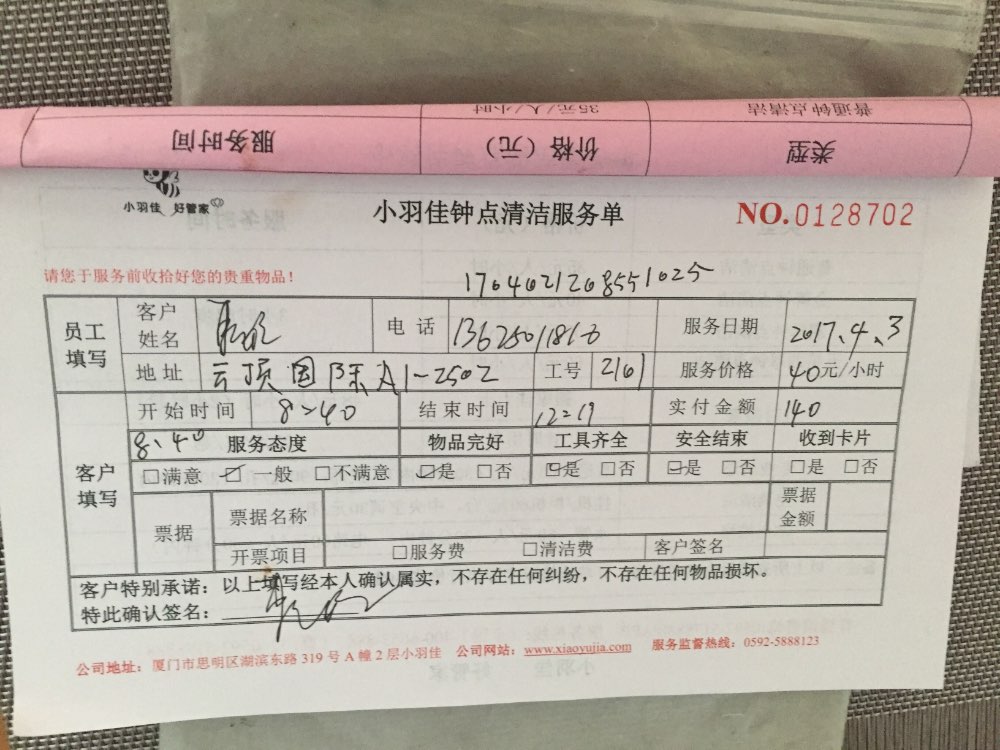 普通钟点清洁 35元/人/小时
类型 价格（元） 服务时间
小羽佳 好管家
小羽佳钟点清洁服务单
NO.0128702
请您于服务前收拾好您的贵重物品！
1704021208551025
员工填写 客户姓名 电话 服务日期 2017.4.3
地址 云顶国际A1-2502 工号 2161 服务价格 40元/小时
客户填写 开始时间 8:40 结束时间 12:19 实付金额 140
8:40 服务态度 物品完好 工具齐全 安全结束 收到卡片
□满意 □一般 □不满意 □是 □否 □是 □否 □是 □否 □是 □否
票据 票据名称 票据金额
开票项目 □服务费 □清洁费 客户签名
客户特别承诺：以上填写经本人确认属实，不存在任何纠纷，不存在任何物品损坏。
特此确认签名：
公司地址：厦门市思明区湖滨东路 319 号 A 幢 2 层小羽佳 公司网站：www.xiaoyujia.com 服务监督热线：0592-5888123